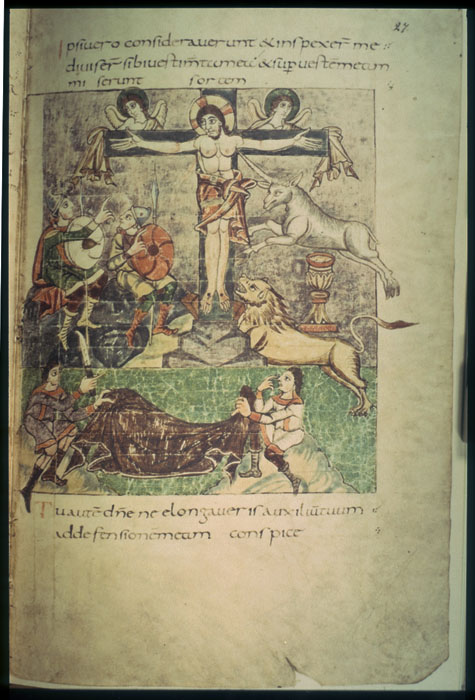 27
Ipsi vero consideraverunt & inspexer̄ me
diviser̄ sibi vestimta mea & sup̄ vestem eam
miserunt sortem
Tu autē dn̄e ne elongaveris auxiliū tuum
ad defensionem eam conspice